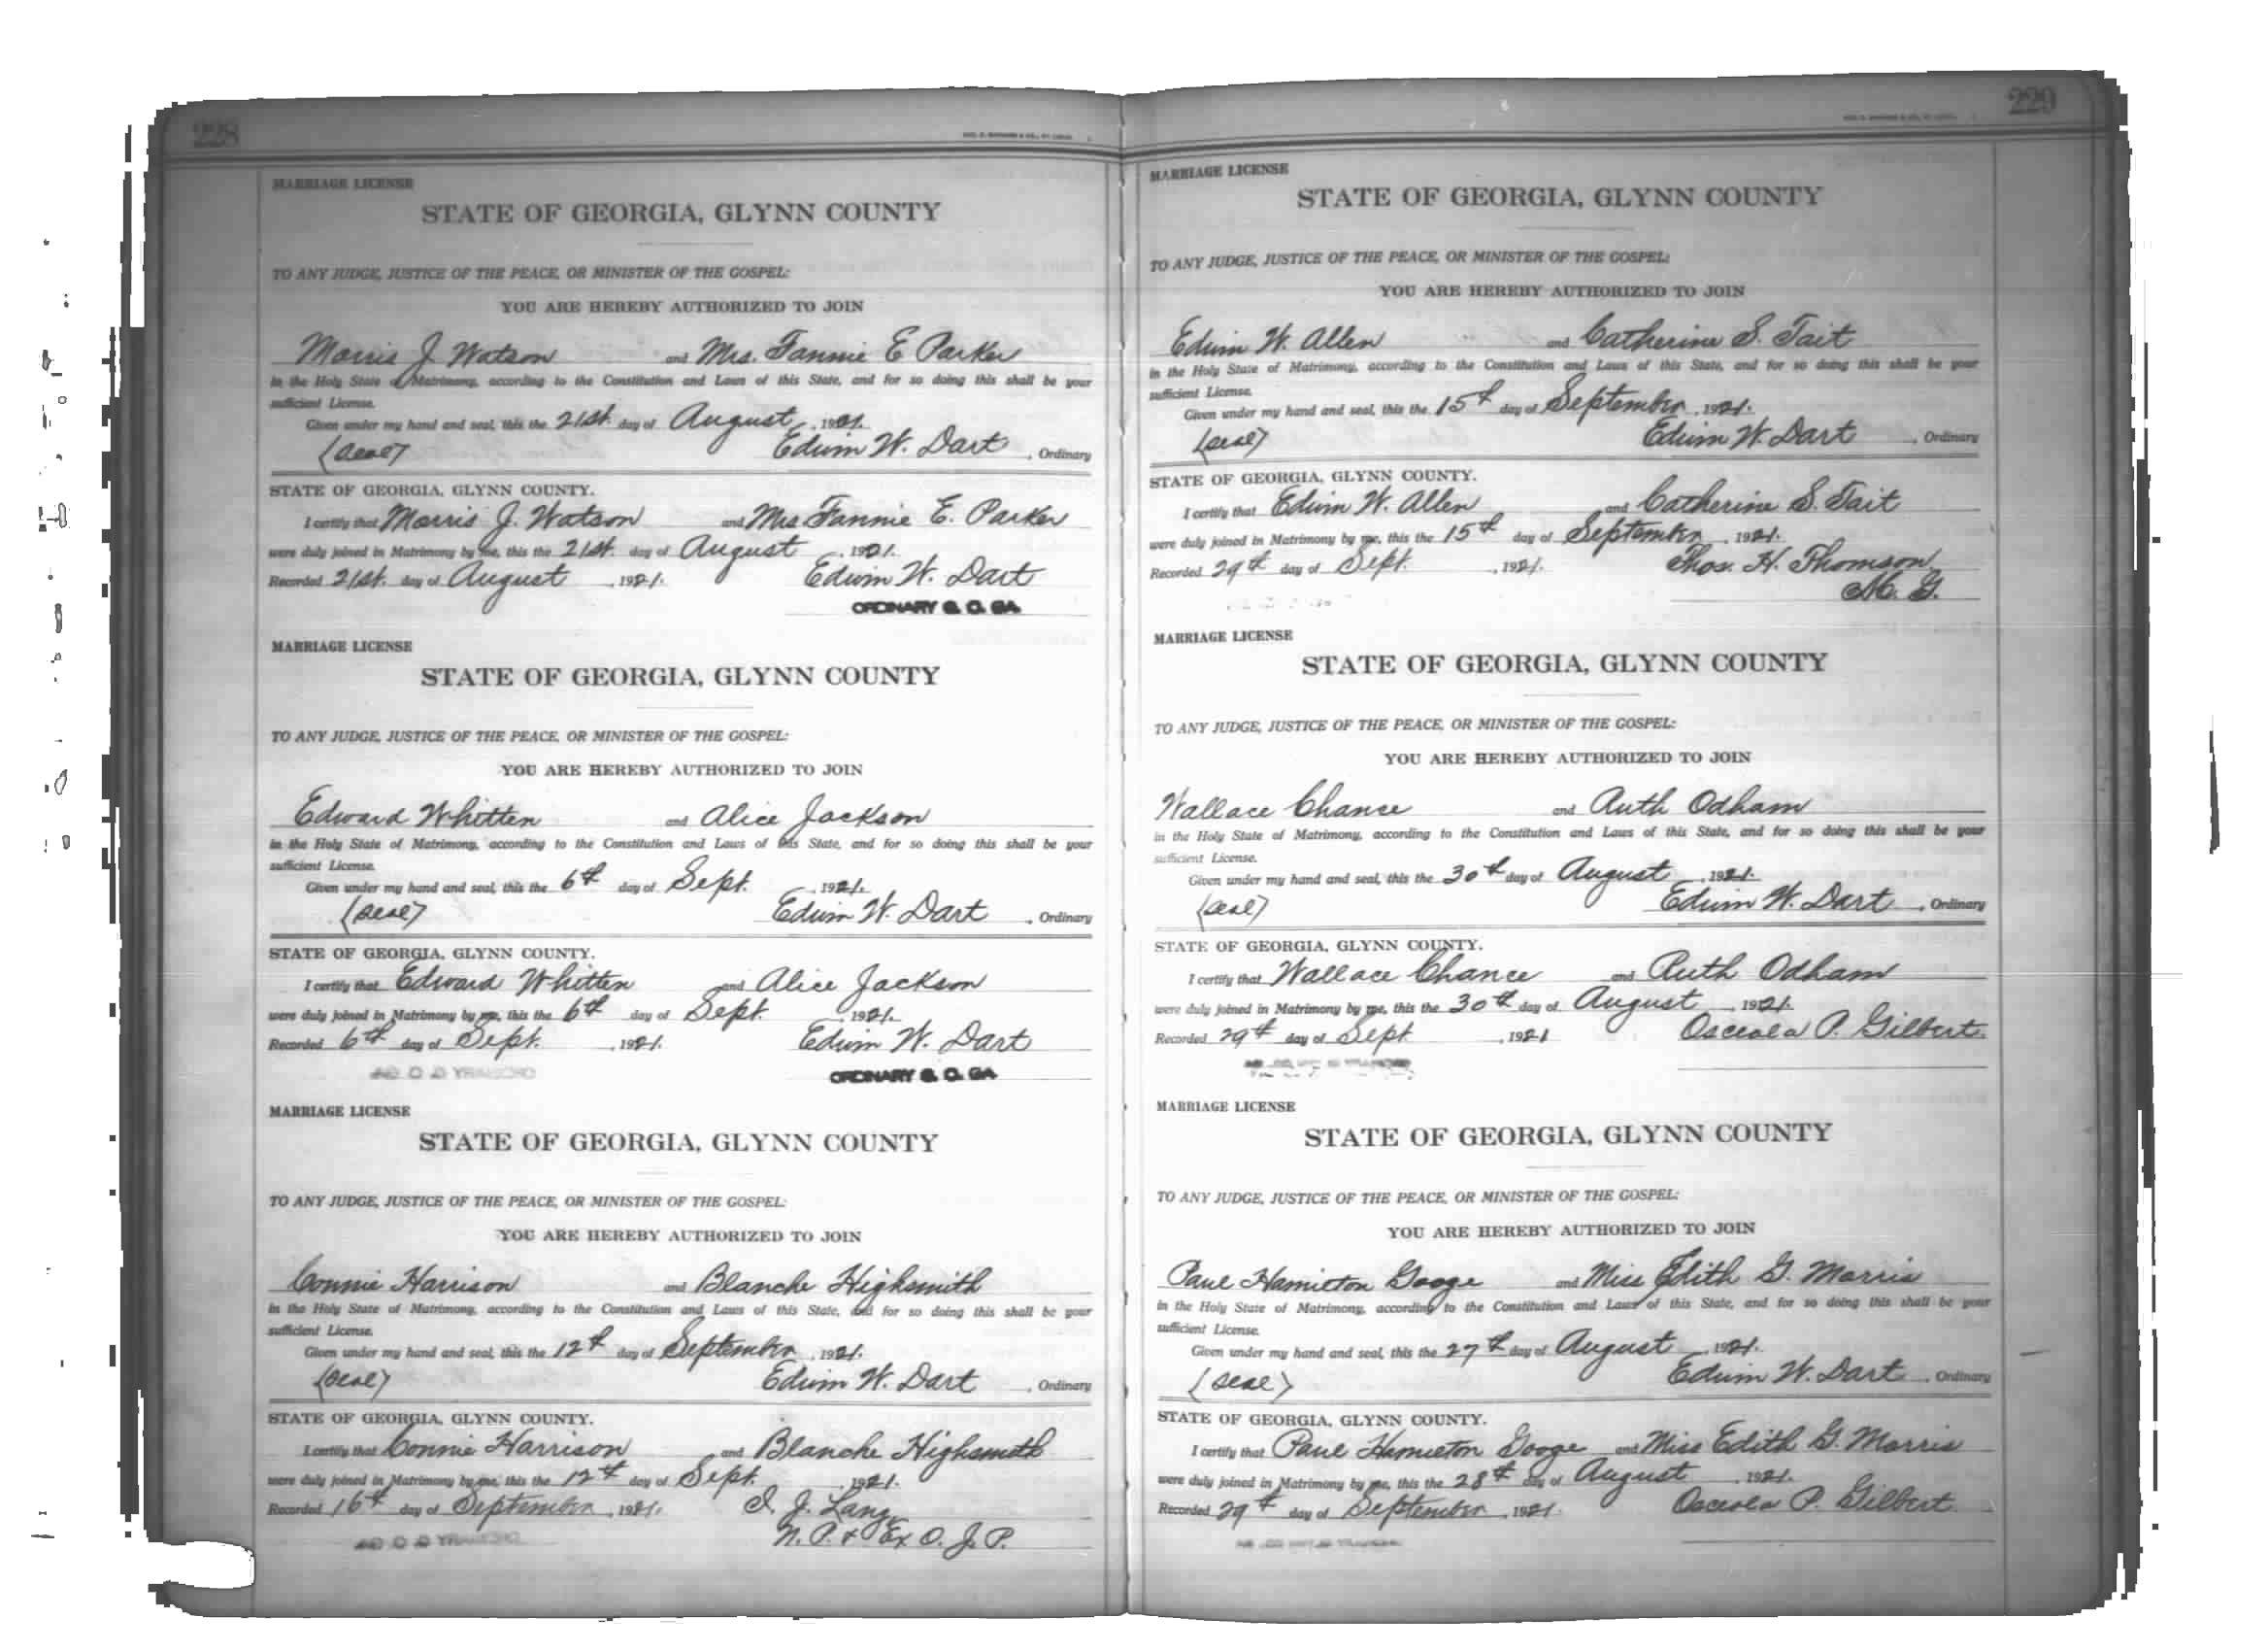 228
MARRIAGE LICENSE
STATE OF GEORGIA, GLYNN COUNTY
TO ANY JUDGE, JUSTICE OF THE PEACE, OR MINISTER OF THE GOSPEL:
YOU ARE HEREBY AUTHORIZED TO JOIN
Morris J. Watson and Mrs. Fannie E Parker
in the Holy State of Matrimony, according to the Constitution and Laws of this State, and for so doing this shall be your
sufficient License.
Given under my hand and seal, this the 21st. day of August, 1921.
(seal) Edwin W. Dart, Ordinary
STATE OF GEORGIA, GLYNN COUNTY.
I certify that Morris J. Watson and Mrs Fannie E. Parker
were duly joined in Matrimony by me, this the 21st. day of August, 1921.
Recorded 21st. day of August, 1921. Edwin W. Dart
ORDINARY G. C. GA.
MARRIAGE LICENSE
STATE OF GEORGIA, GLYNN COUNTY
TO ANY JUDGE, JUSTICE OF THE PEACE, OR MINISTER OF THE GOSPEL:
YOU ARE HEREBY AUTHORIZED TO JOIN
Edward Whitten and Alice Jackson
in the Holy State of Matrimony, according to the Constitution and Laws of this State, and for so doing this shall be your
sufficient License.
Given under my hand and seal, this the 6th day of Sept., 1921.
(seal) Edwin W. Dart, Ordinary
STATE OF GEORGIA, GLYNN COUNTY.
I certify that Edward Whitten and Alice Jackson
were duly joined in Matrimony by me, this the 6th day of Sept., 1921.
Recorded 6th day of Sept., 1921. Edwin W. Dart
ORDINARY G. C. GA.
MARRIAGE LICENSE
STATE OF GEORGIA, GLYNN COUNTY
TO ANY JUDGE, JUSTICE OF THE PEACE, OR MINISTER OF THE GOSPEL:
YOU ARE HEREBY AUTHORIZED TO JOIN
Connie Harrison and Blanche Highsmith
in the Holy State of Matrimony, according to the Constitution and Laws of this State, and for so doing this shall be your
sufficient License.
Given under my hand and seal, this the 12th day of September, 1921.
(seal) Edwin W. Dart, Ordinary
STATE OF GEORGIA, GLYNN COUNTY.
I certify that Connie Harrison and Blanche Highsmith
were duly joined in Matrimony by me, this the 12th day of Sept., 1921.
Recorded 16th day of September, 1921. I. J. Lang,
N. P. & Ex O. J. P.
229
MARRIAGE LICENSE
STATE OF GEORGIA, GLYNN COUNTY
TO ANY JUDGE, JUSTICE OF THE PEACE, OR MINISTER OF THE GOSPEL:
YOU ARE HEREBY AUTHORIZED TO JOIN
Edwin W. Allen and Catherine S. Tait
in the Holy State of Matrimony, according to the Constitution and Laws of this State, and for so doing this shall be your
sufficient License.
Given under my hand and seal, this the 15th day of September, 1921.
(seal) Edwin W. Dart, Ordinary
STATE OF GEORGIA, GLYNN COUNTY.
I certify that Edwin W. Allen and Catherine S. Tait
were duly joined in Matrimony by me, this the 15th day of September, 1921.
Recorded 29th day of Sept., 1921. Thos. H. Thomson
M. G.
MARRIAGE LICENSE
STATE OF GEORGIA, GLYNN COUNTY
TO ANY JUDGE, JUSTICE OF THE PEACE, OR MINISTER OF THE GOSPEL:
YOU ARE HEREBY AUTHORIZED TO JOIN
Wallace Chance and Ruth Odham
in the Holy State of Matrimony, according to the Constitution and Laws of this State, and for so doing this shall be your
sufficient License.
Given under my hand and seal, this the 30th day of August, 1921.
(seal) Edwin W. Dart, Ordinary
STATE OF GEORGIA, GLYNN COUNTY.
I certify that Wallace Chance and Ruth Odham
were duly joined in Matrimony by me, this the 30th day of August, 1921.
Recorded 29th day of Sept, 1921 Osceola P. Gilbert.
MARRIAGE LICENSE
STATE OF GEORGIA, GLYNN COUNTY
TO ANY JUDGE, JUSTICE OF THE PEACE, OR MINISTER OF THE GOSPEL:
YOU ARE HEREBY AUTHORIZED TO JOIN
Paul Hamilton Googe and Miss Edith G. Morris
in the Holy State of Matrimony, according to the Constitution and Laws of this State, and for so doing this shall be your
sufficient License.
Given under my hand and seal, this the 27th day of August, 1921.
(seal) Edwin W. Dart, Ordinary
STATE OF GEORGIA, GLYNN COUNTY.
I certify that Paul Hamilton Googe and Miss Edith G. Morris
were duly joined in Matrimony by me, this the 28th day of August, 1921.
Recorded 29th day of September, 1921. Osceola P. Gilbert.